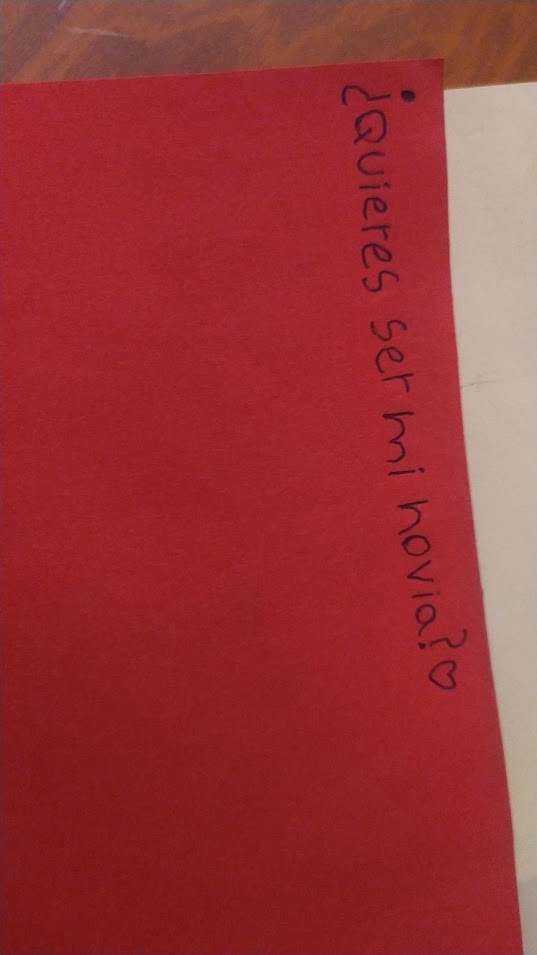 ¿Quieres ser mi novia?♡